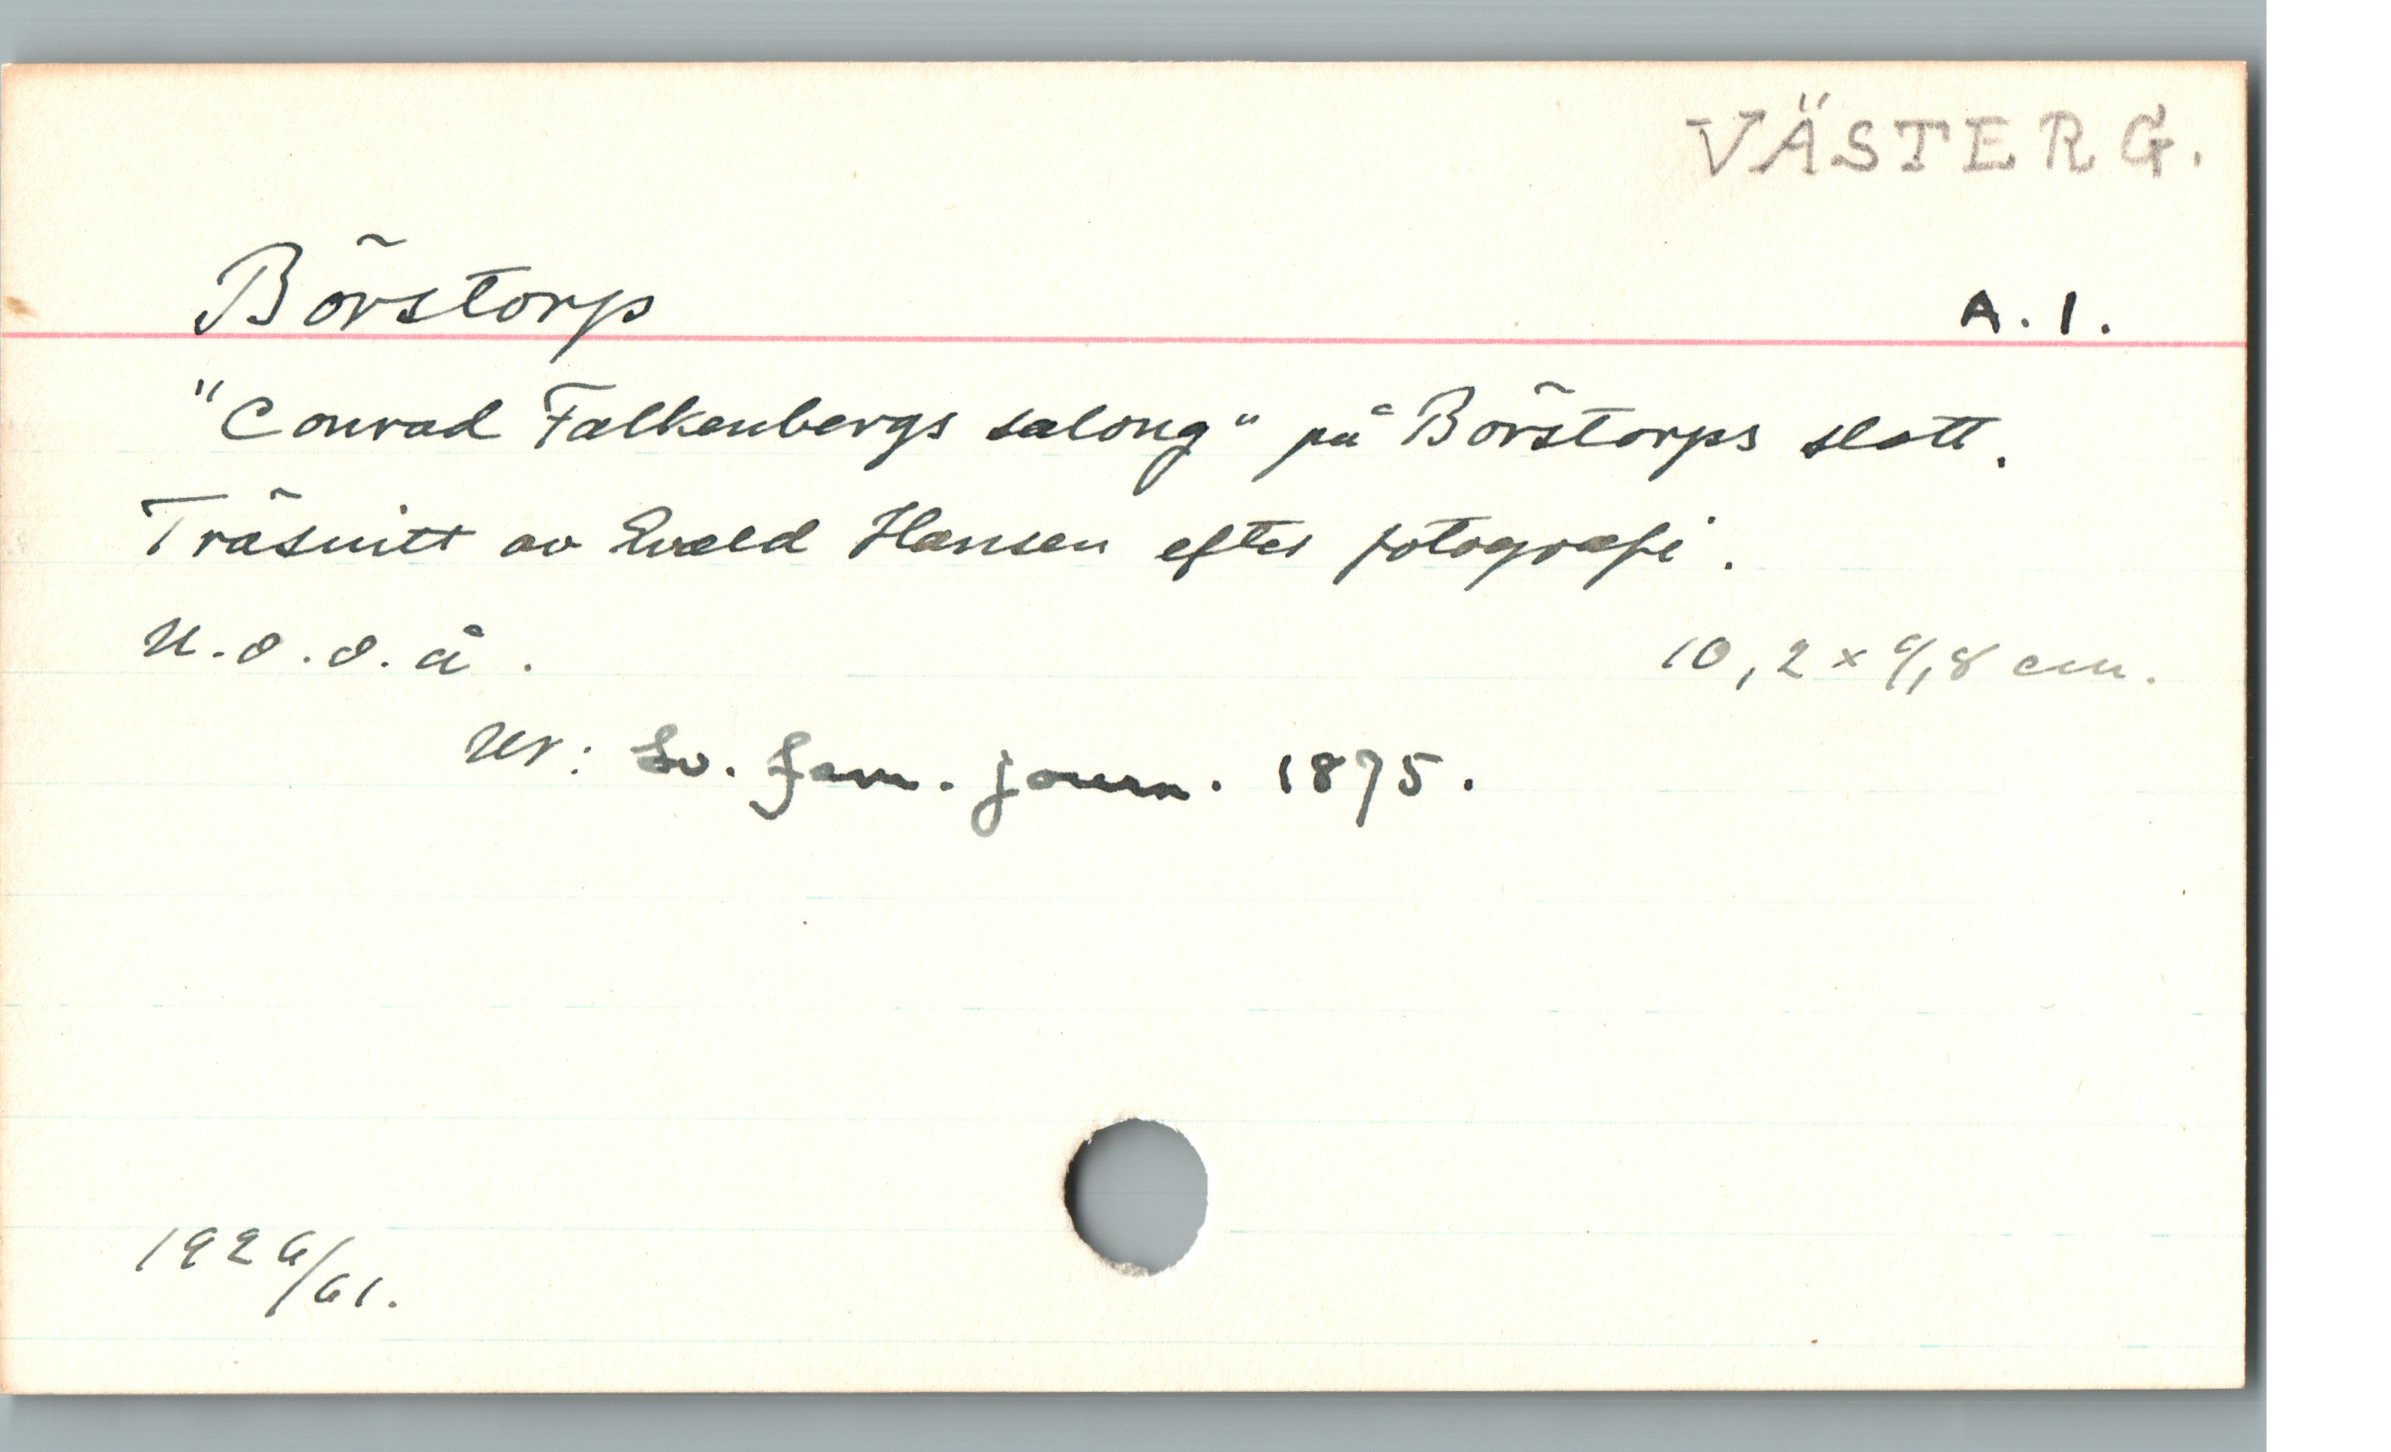 VÄSTERG.
Börstorp A.1.
"Conrad Falkenbergs salong" på Börstorps slott.
Träsnitt av Evald Hansen efter fotografi.
U.o.o.å. 10,2 x 9,8 cm.
Ur: Sv. fam. journ. 1875.
1926/61.